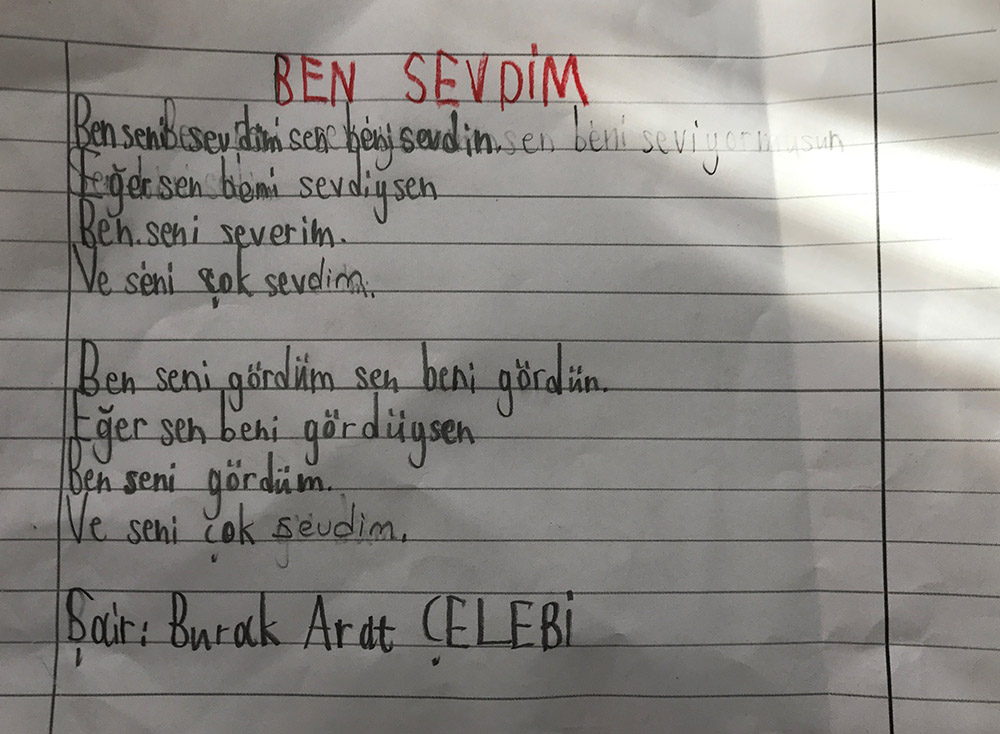 BEN SEVDİM
Ben seni sevdim sen beni sevdin. sen beni seviyormusun
Eğer sen beni sevdiysen
Ben seni severim.
Ve seni çok sevdim.
Ben seni gördüm sen beni gördün.
Eğer sen beni gördüysen
Ben seni gördüm.
Ve seni çok sevdim.
Şair: Burak Arat ÇELEBİ